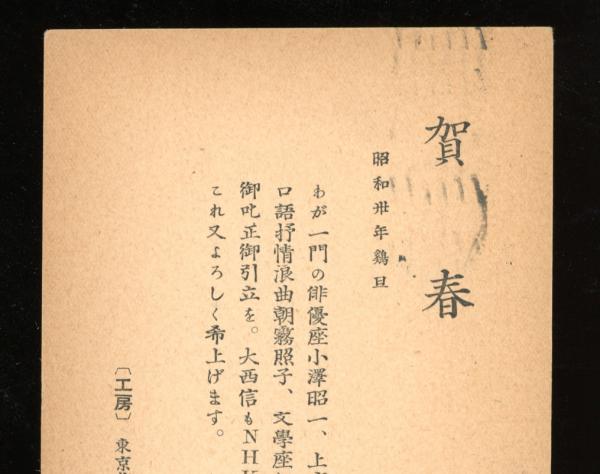 賀春
昭和卅年鷄旦
わが一門の俳優座小澤昭一、上
口語抒情浪曲朝霧照子、文學座
御叱正御引立を。大西信もNHK
これ又よろしく希上げます。
〔工房〕 東京